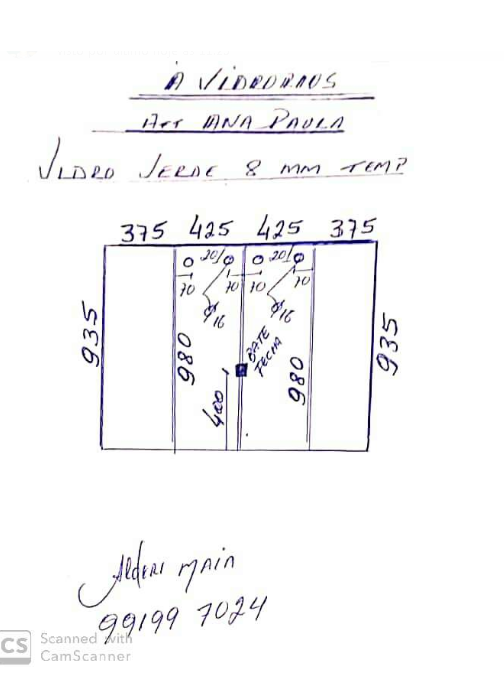 A VIDRORAUS
Att ANA PAULA
VIDRO VERDE 8 MM TEMP
375 425 425 375
20 20
70 70 70 70
Ø16 Ø16
935 980 BATE FECHA 980 935
400
Alderi MAIA
99199 7024
CS Scanned with
CamScanner